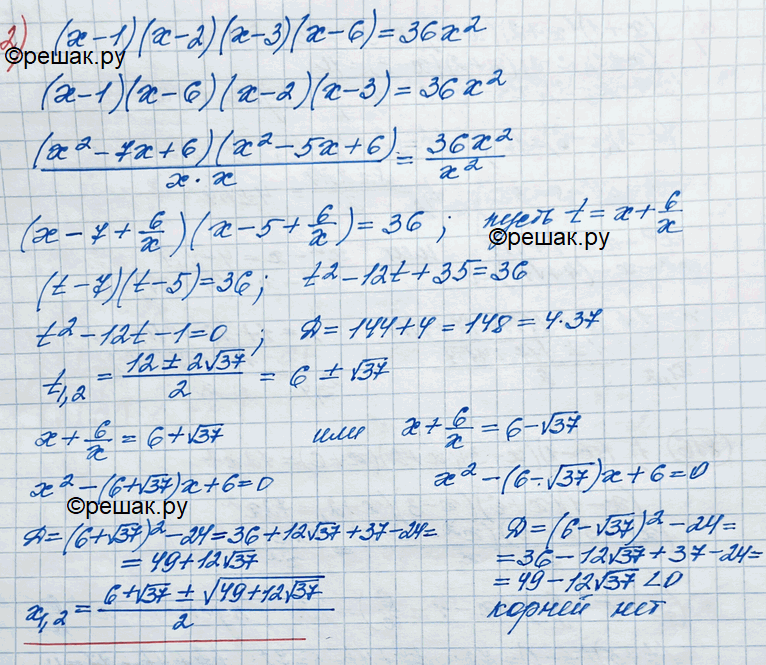 2) (x-1)(x-2)(x-3)(x-6)=36x²
©решак.ру
(x-1)(x-6)(x-2)(x-3)=36x²
(x²-7x+6)(x²-5x+6)/(x·x) = 36x²/x²
(x-7+6/x)(x-5+6/x)=36; пусть t=x+6/x
©решак.ру
(t-7)(t-5)=36; t²-12t+35=36
t²-12t-1=0; Д=144+4=148=4·37
t₁,₂ = (12±2√37)/2 = 6±√37
x+6/x=6+√37 или x+6/x=6-√37
x²-(6+√37)x+6=0 x²-(6-√37)x+6=0
©решак.ру
Д=(6+√37)²-24=36+12√37+37-24= Д=(6-√37)²-24=
=49+12√37 =36-12√37+37-24=
=49-12√37<0
x₁,₂ = (6+√37±√(49+12√37))/2 корней нет